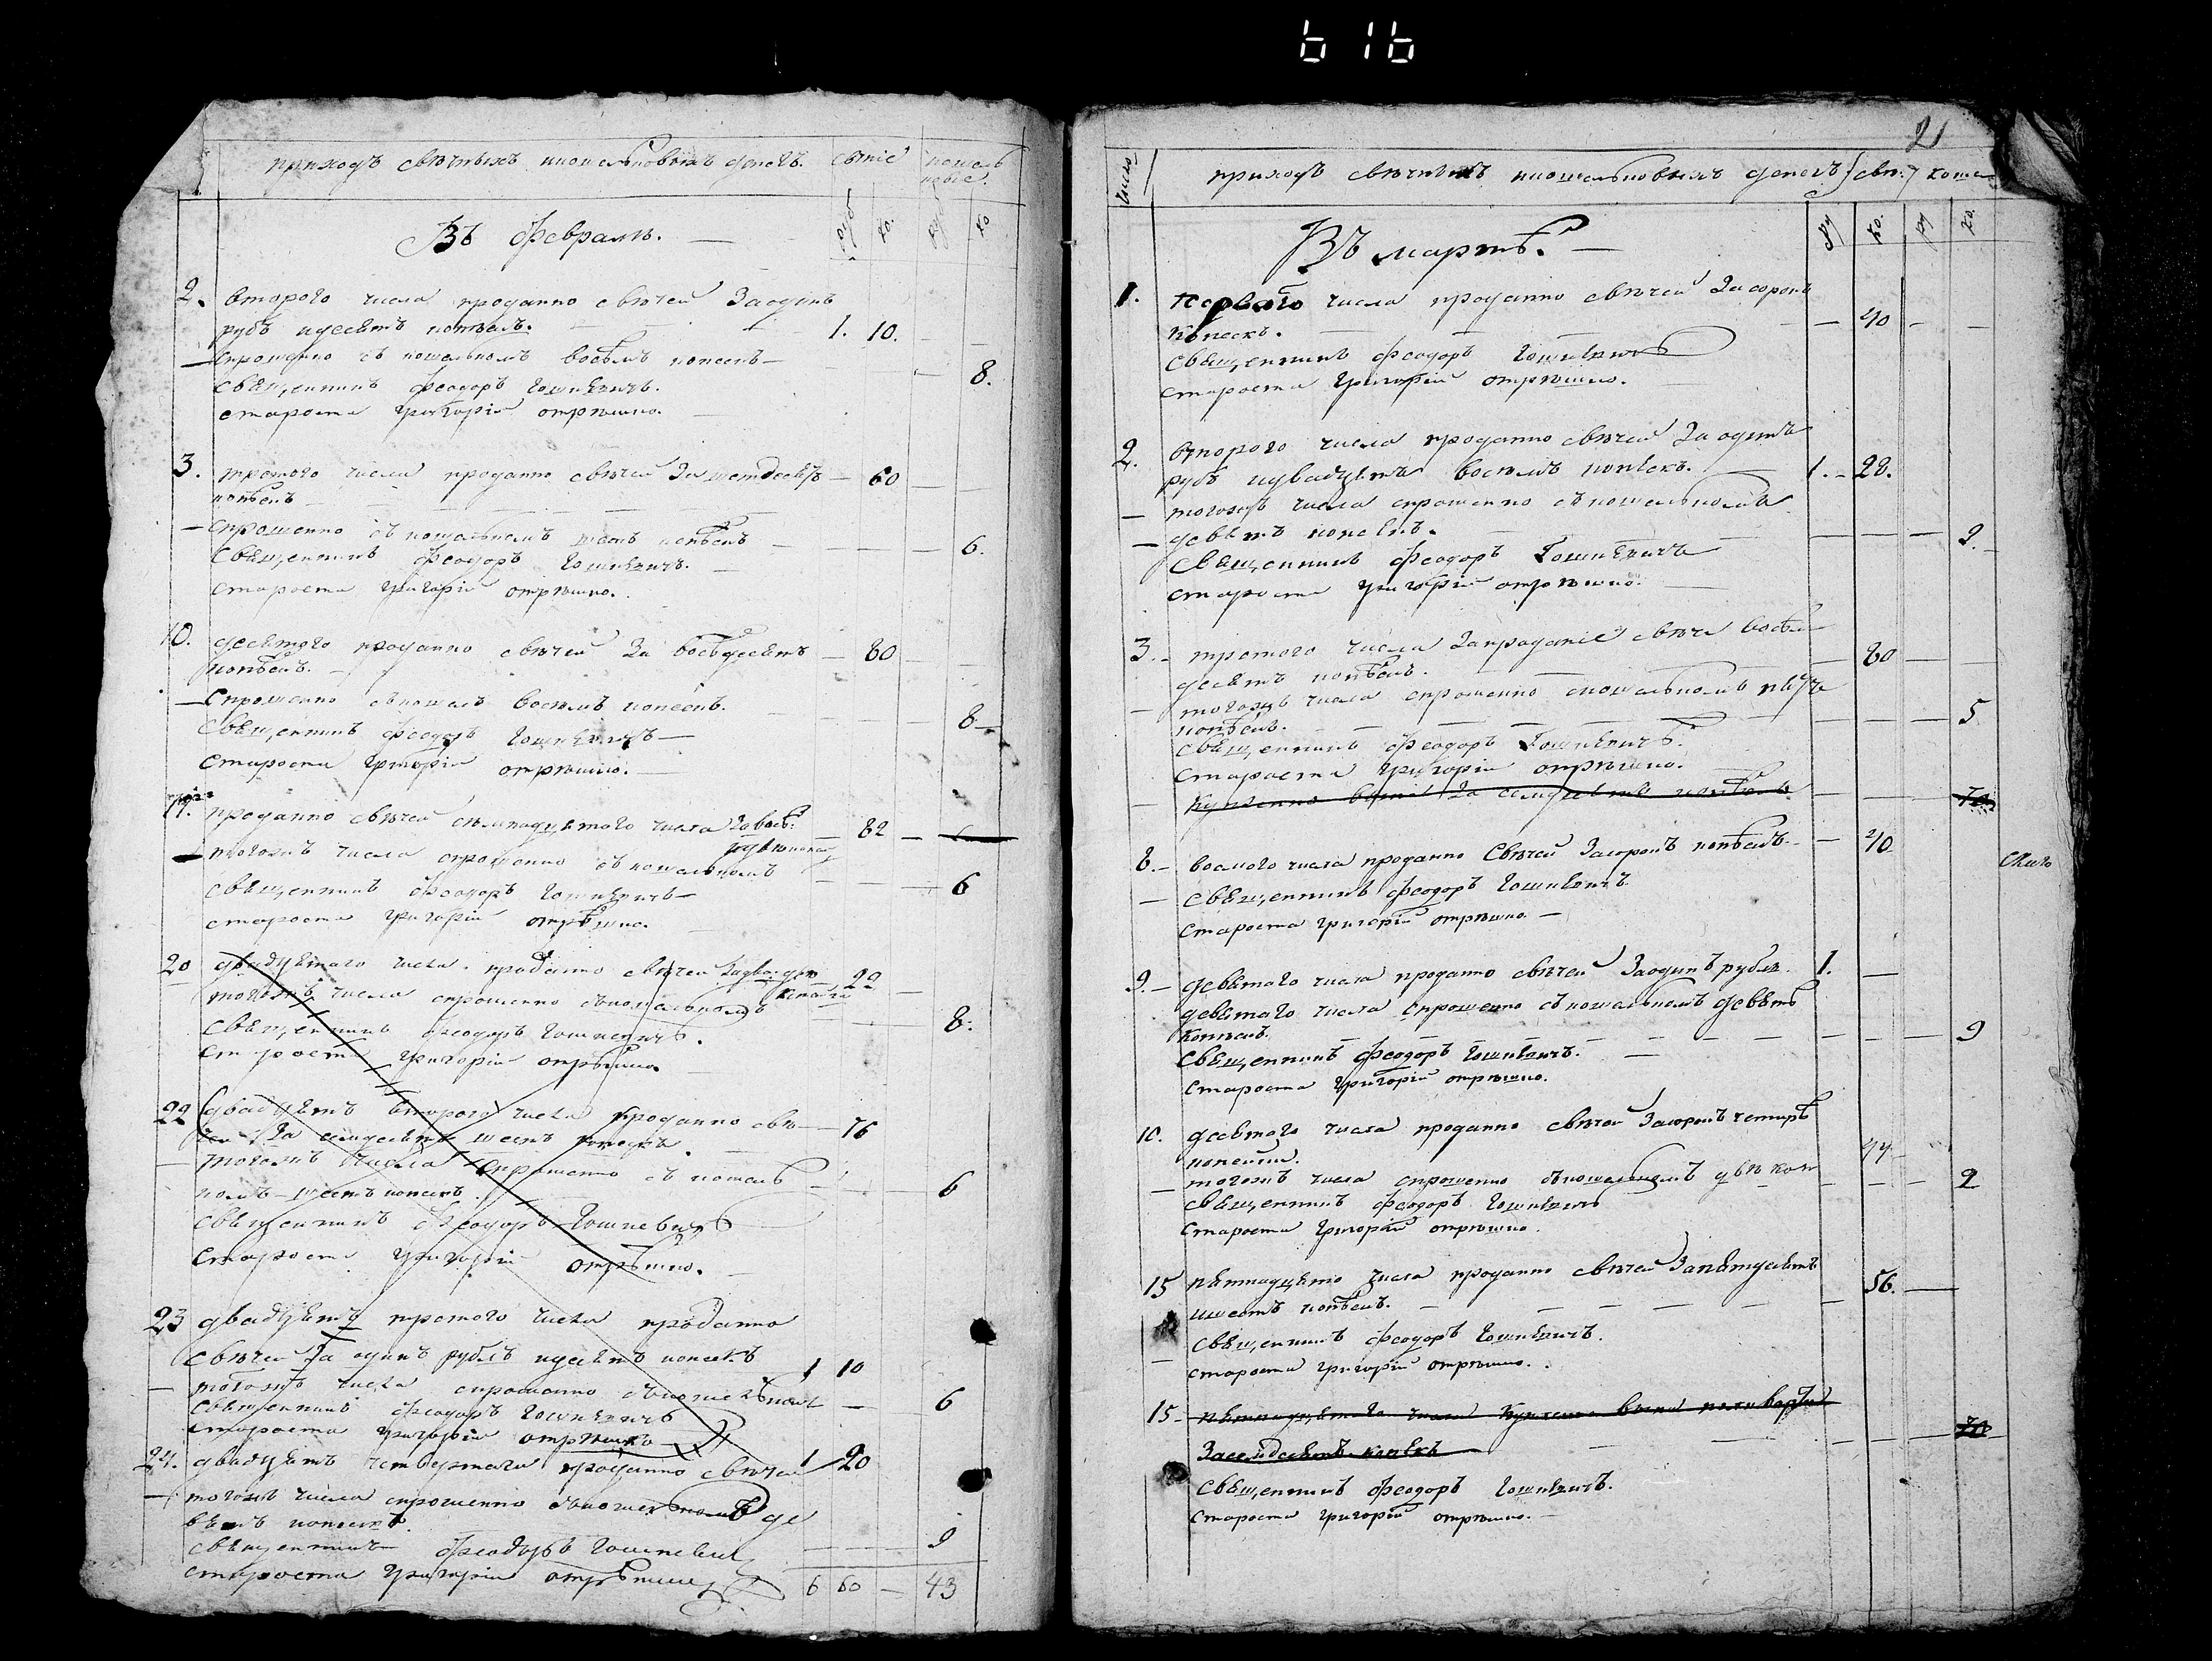 616
приходъ свѣчныхъ икошельковыхъ денегъ.
свѣчніе
кошель
ковые.
руб
ко.
руб
ко
Въ февралѣ.
2. второго числа проданно свѣчей Заодинъ
рубъ идесетъ копѣекъ. 1. 10.
спрошенно съ кошелькомъ восѣмъ копеекъ 8.
Свѣщенникъ Феодоръ Гошкѣвичъ.
староста григорій отрѣшко.
3. третого числа проданно свѣчей За шетдесѣтъ 60
копѣекъ
спрошенно съ кошелькомъ шесть копѣекъ 6.
Свѣщенникъ Феодоръ Гошкѣвичъ.
староста григорій отрѣшко.
10. десѣтого проданно свѣчей За восѣдесѣтъ 80
копѣекъ.
спрошенно съ восѣмъ копеекъ. 8
Свѣщенникъ Феодоръ Гошкѣвичъ
Староста григорій отрѣшко.
17. проданно свѣчей семнадцѣтого числа За восѣ. 82
тогожъ числа спрошенно съ кошелькомъ 6
Свѣщенникъ Феодоръ Гошкѣвичъ
староста григорій отрѣшко.
20 двадцѣтого числа. проданно свѣчей 22
тогожъ числа спрошенно съкошелькомъ 8.
Свѣщенникъ Феодоръ Гошкевичъ.
староста григорій отрѣшко.
22 двадцѣтъ второго числа проданно свѣ 76
чей За семдесѣтъ шесть копеекъ.
тогожъ числа спрошенно съ кошель
комъ шесть копеекъ. 6
Свѣщенникъ Феодоръ Гошкевичъ
Староста григорій отрѣшко.
23 двадцѣтъ третого числа проданно
свѣчей За одинъ рубль идесѣтъ копеекъ 1 10
тогожъ числа спрошенно 6
Свѣщенникъ Феодоръ Гошкѣвичъ
староста григорій отрѣшко
24. двадцѣтъ четвертаго проданно свѣчей 1 20
тогожъ числа спрошенно де
вѣтъ копеекъ. 9
Свѣщенникъ Феодоръ Гошкевич
староста григорій отрѣшко 6 60 43
21
число
приходъ свѣчныхъ икошельковыхъ денегъ свѣч: коше
ру
ко.
ру
ко.
Въ мартѣ.
1. первого числа проданно свѣчей За сорокъ
копеекъ. 40
Свѣщенникъ Феодоръ Гошкѣвичъ
староста григорій отрѣшко.
2. второго числа проданно свѣчей За одинъ
рубъ идвадцѣтъ восѣмъ копѣекъ. 1. 28.
тогожъ числа спрошенно съкошелькомъ
девѣтъ копеекъ. 9.
Свѣщенникъ Феодоръ Гошкѣвичъ
староста григорій отрѣшко.
3. третого числа Запроданіе свѣчи восѣм
десѣтъ копѣекъ. 80
тогожъ числа спрошенно скошелькомъ пѣтъ
копѣекъ. 5
Свѣщенникъ Феодоръ Гошкѣвичъ.
Староста григорій отрѣшко.
Купленно вина За семдесѣтъ копѣекъ 70
8. восмого числа проданно Свѣчей Засорокъ копѣекъ. 40
Свѣщенникъ Феодоръ Гошкѣвичъ.
староста григорій отрѣшко.
9. девѣтого числа проданно свѣчей Заодинъ рубль. 1.
девѣтого числа спрошенно съкошелькомъ девѣтъ
копѣекъ. 9
Свѣщенникъ Феодоръ Гошкѣвичъ.
староста григорій отрѣшко.
10. десѣтого числа проданно свѣчей Засорокъ четирѣ
копейки. 44
тогожъ числа спрошенно съкошелькомъ двѣ коп 2
Свѣщенникъ Феодоръ Гошкѣвичъ
староста григорій отрѣшко.
15 пѣтнадцѣто числа проданно свѣчей Запѣтдесѣтъ
ишесть копѣекъ. 56.
Свѣщенникъ Феодоръ Гошкѣвичъ.
староста григорій отрѣшко.
15 пѣтнадцѣтого числа Купленно вина
Засемдесѣтъ копѣкъ 70
Свѣщенникъ Феодоръ Гошкѣвичъ.
староста григорій отрѣшко.